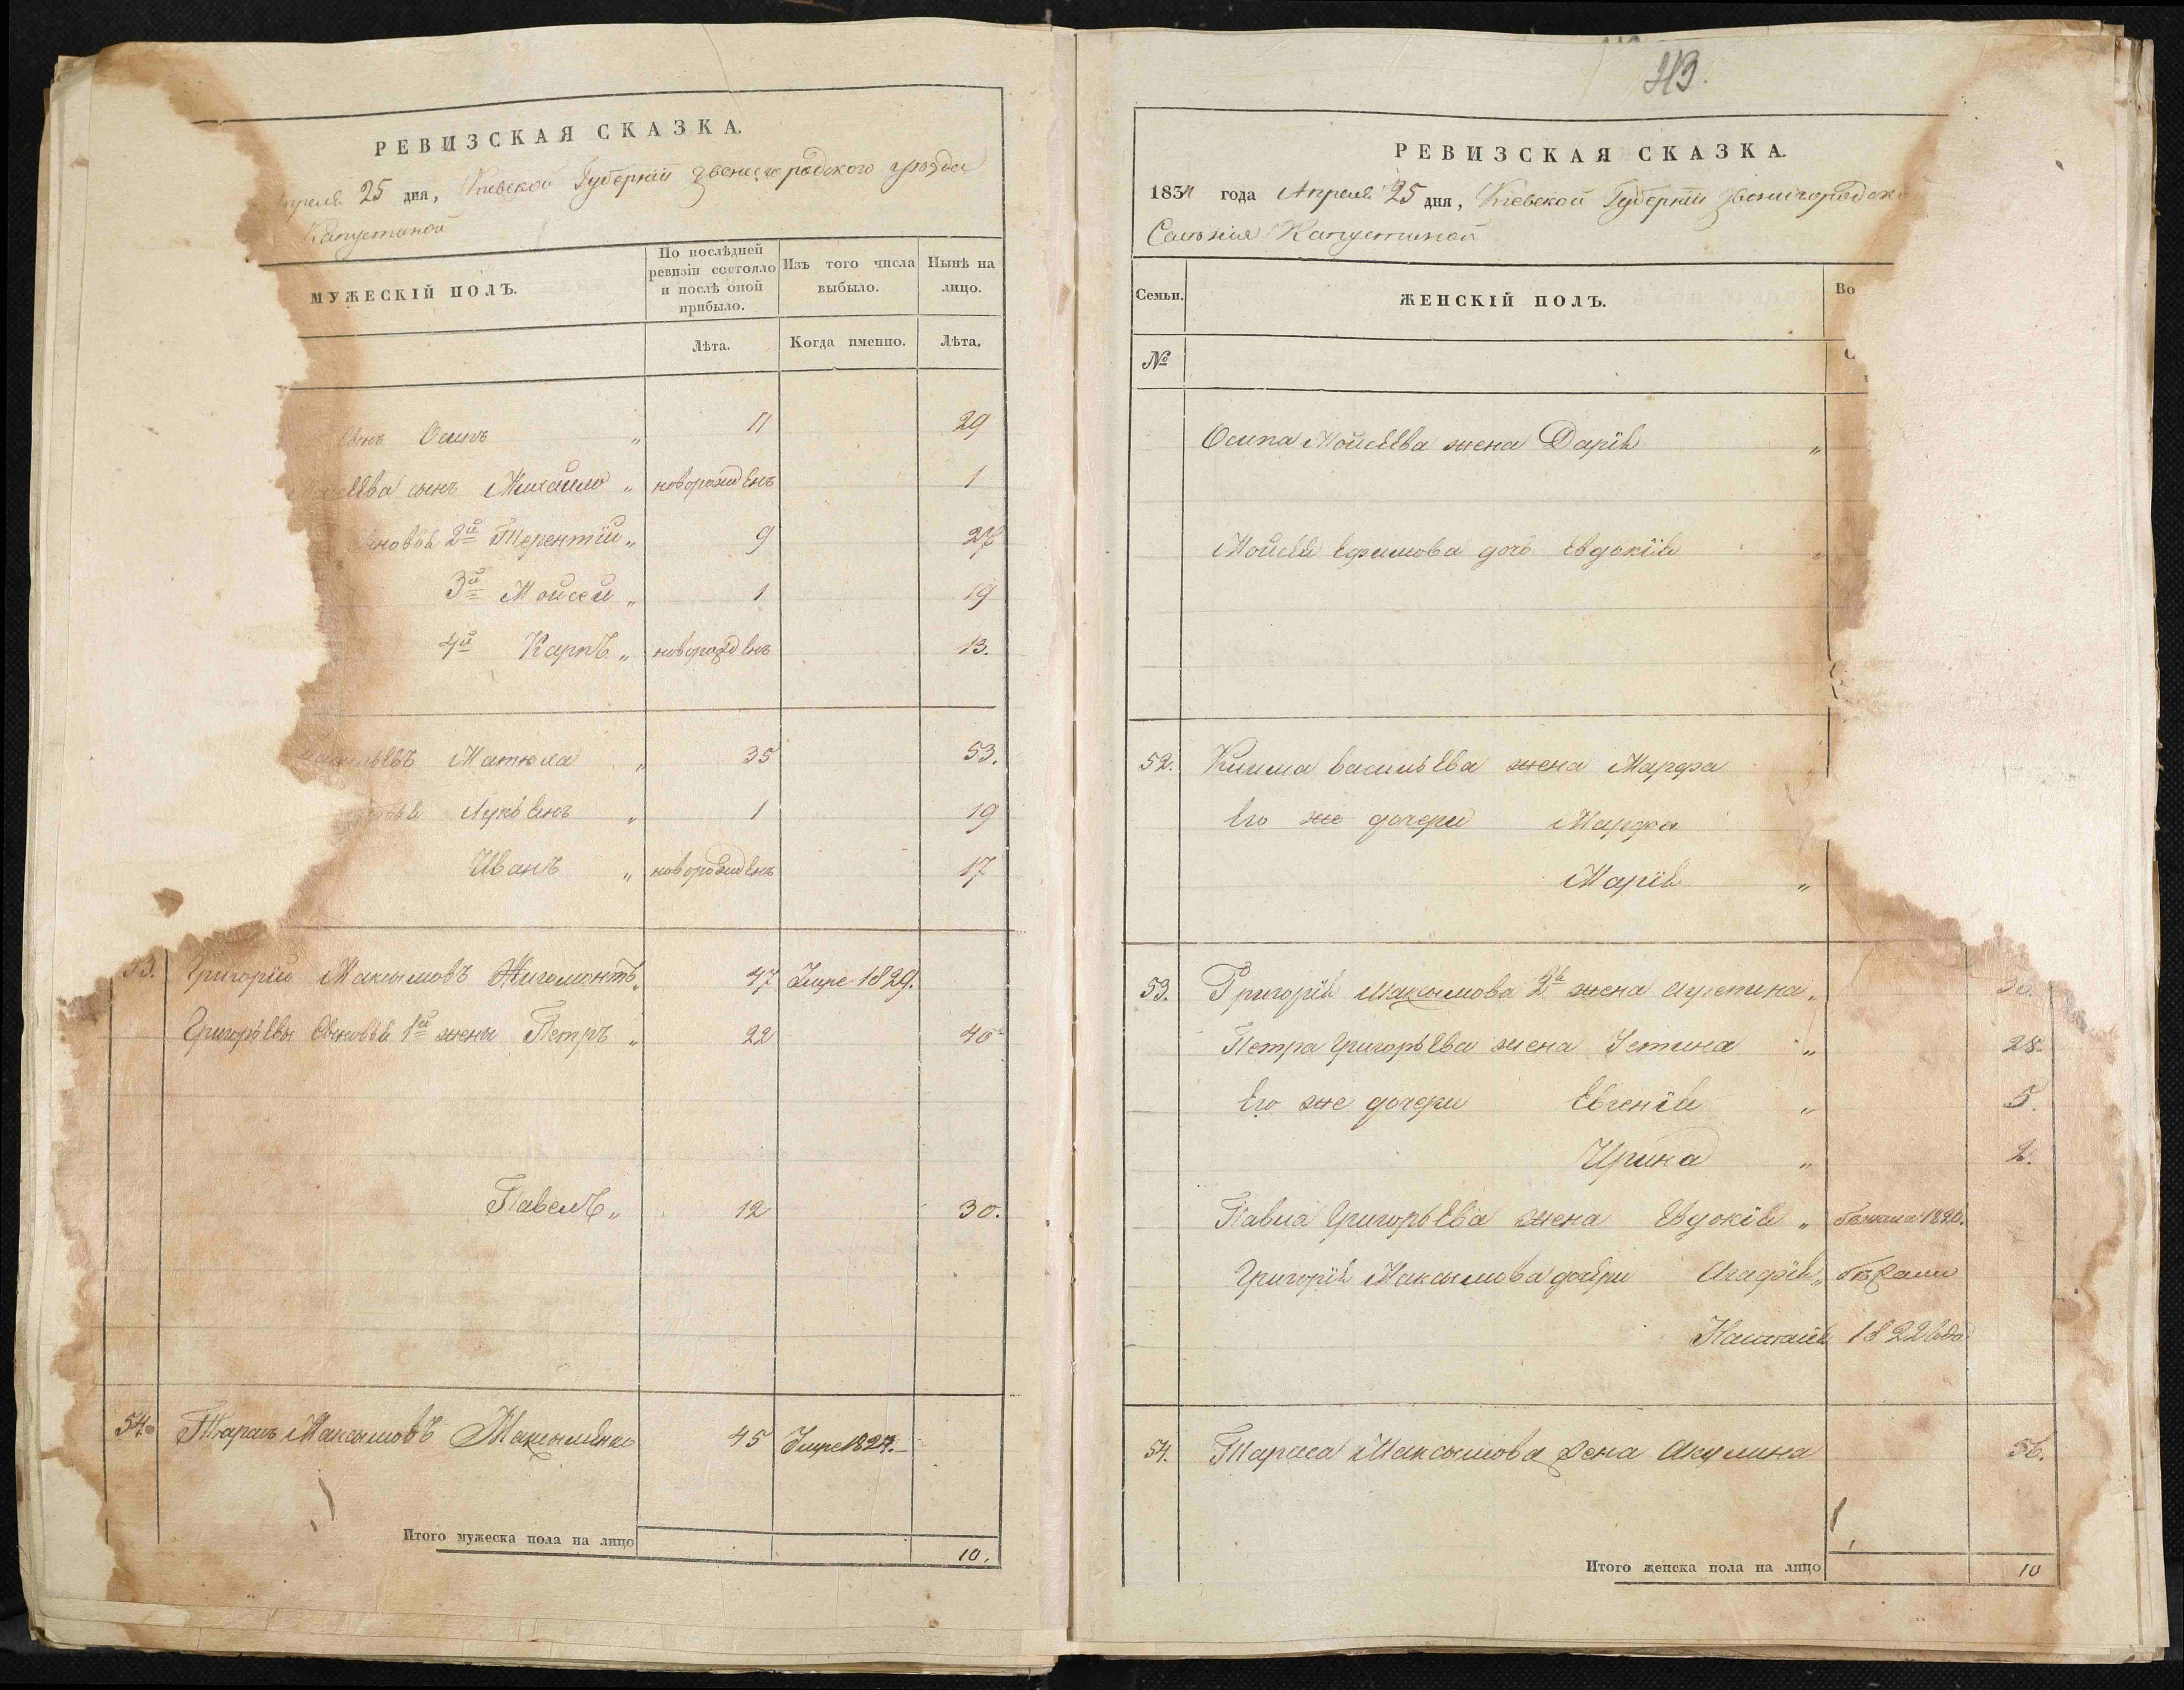 РЕВИЗСКАЯ СКАЗКА.
Апреля 25 дня, Киевской Губернїи Звенигородского уѣзда
Капустиной
МУЖЕСКІЙ ПОЛЪ.
По послѣдней ревизіи состояло и послѣ оной прибыло.
Изъ того числа выбыло.
Нынѣ на лицо.
Лѣта.
Когда именно.
Лѣта.
сынъ Осипъ " 11 29
сынъ Михайло " новорожденъ 1
2й Терентїй " 9 27
3й Мойсей " 1 19
4й Карпъ " новорожденъ 13.
Васильевъ Матюха " 35 53.
Лукьянъ " 1 19
Иванъ " новорожденъ 17
53. Григорїй Максымовъ 47 Умре 1829.
Григорьевы сыновья 1й жены Петръ " 22 40
Павелъ " 12 30.
54. Тарасъ Максымовъ 45 Умре
Итого мужеска пола на лицо
10.
43.
РЕВИЗСКАЯ СКАЗКА.
1834 года Апреля 25 дня, Киевской Губернїи Звенигородско
Селенїя Капустиной
Семьи.
ЖЕНСКІЙ ПОЛЪ.
Во
№
Осипа Мойсеева жена Дарїя "
Мойсея Ефимова дочь Евдокїя "
52. Васильева жена Марфа
Его же дочери Марфа
Марїя "
53. Григорїя Максымова 2я жена "
Петра Григорьева жена Устина " 28.
Его же дочери Евгенїя " 5.
Ирина " 2.
Павла Григорьева жена Евдокїя " бежала
Григорїя Максымова дочери Агафїя " бежали
1822 года
54. Тараса Максымова жена Акулина 56.
Итого женска пола на лицо
10